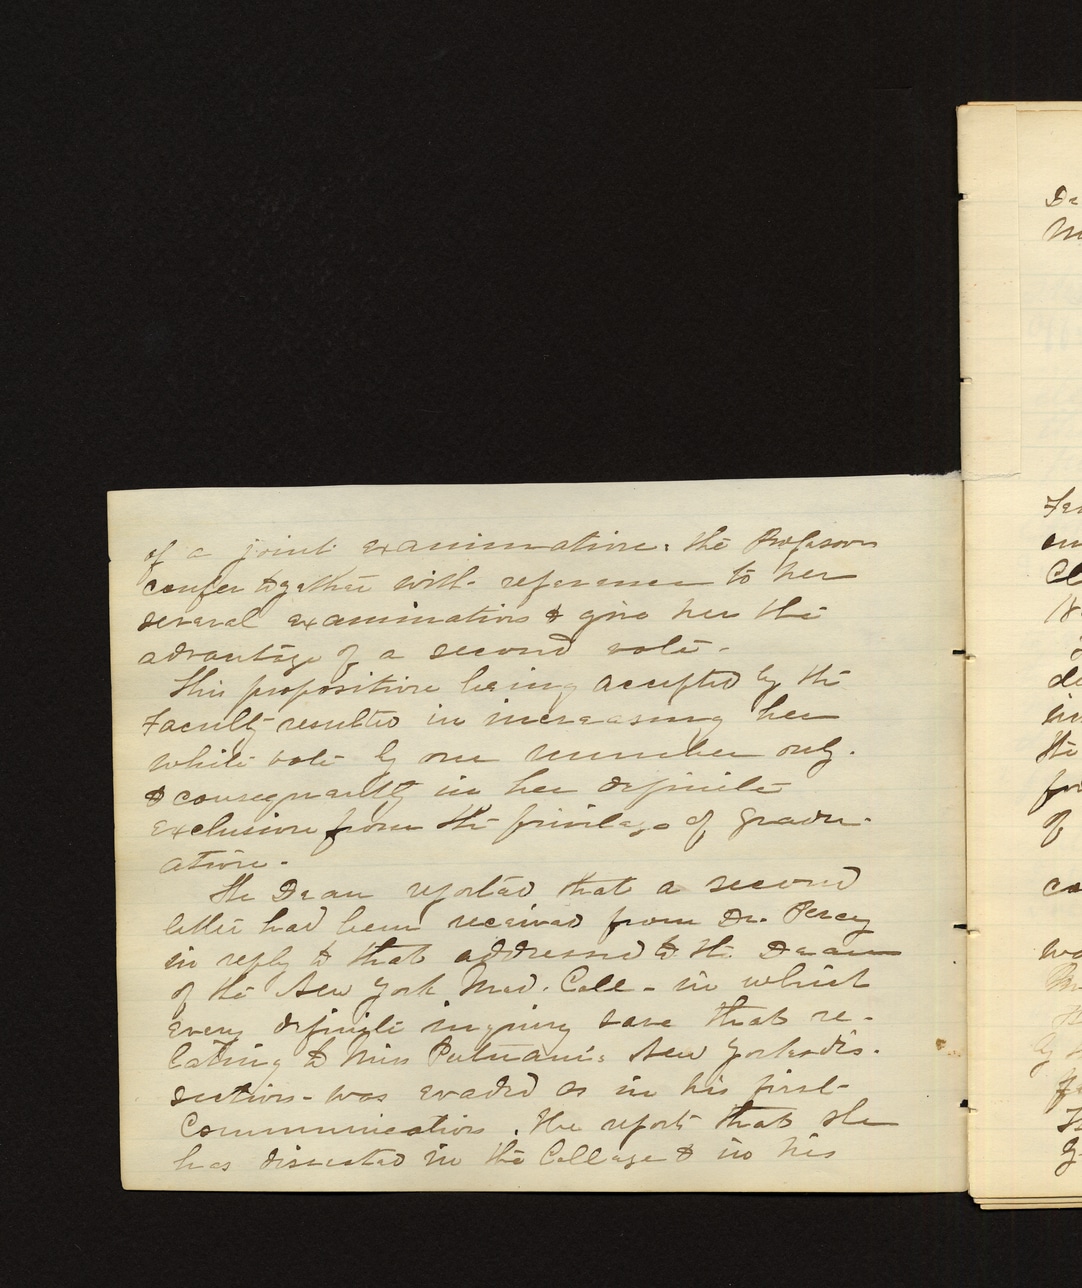 of a joint examination: the Professors
confer together with reference to her
several examinations & give her the
advantage of a second vote.
This proposition being accepted by the
Faculty resulted in increasing her
white vote by one number only.
& consequently in her definite
exclusion from the privilege of gradu-
ation.
The Dean reported that a second
letter had been received from Dr. Percy
in reply to that addressed to the Dean
of the New York Med. Coll - in which
every definite inquiry save that re-
lating to Miss Putnam's New York dis-
section - was evaded as in his first
Communication. He reports that she
has dissected in the College & in his
De
Cl
de
of